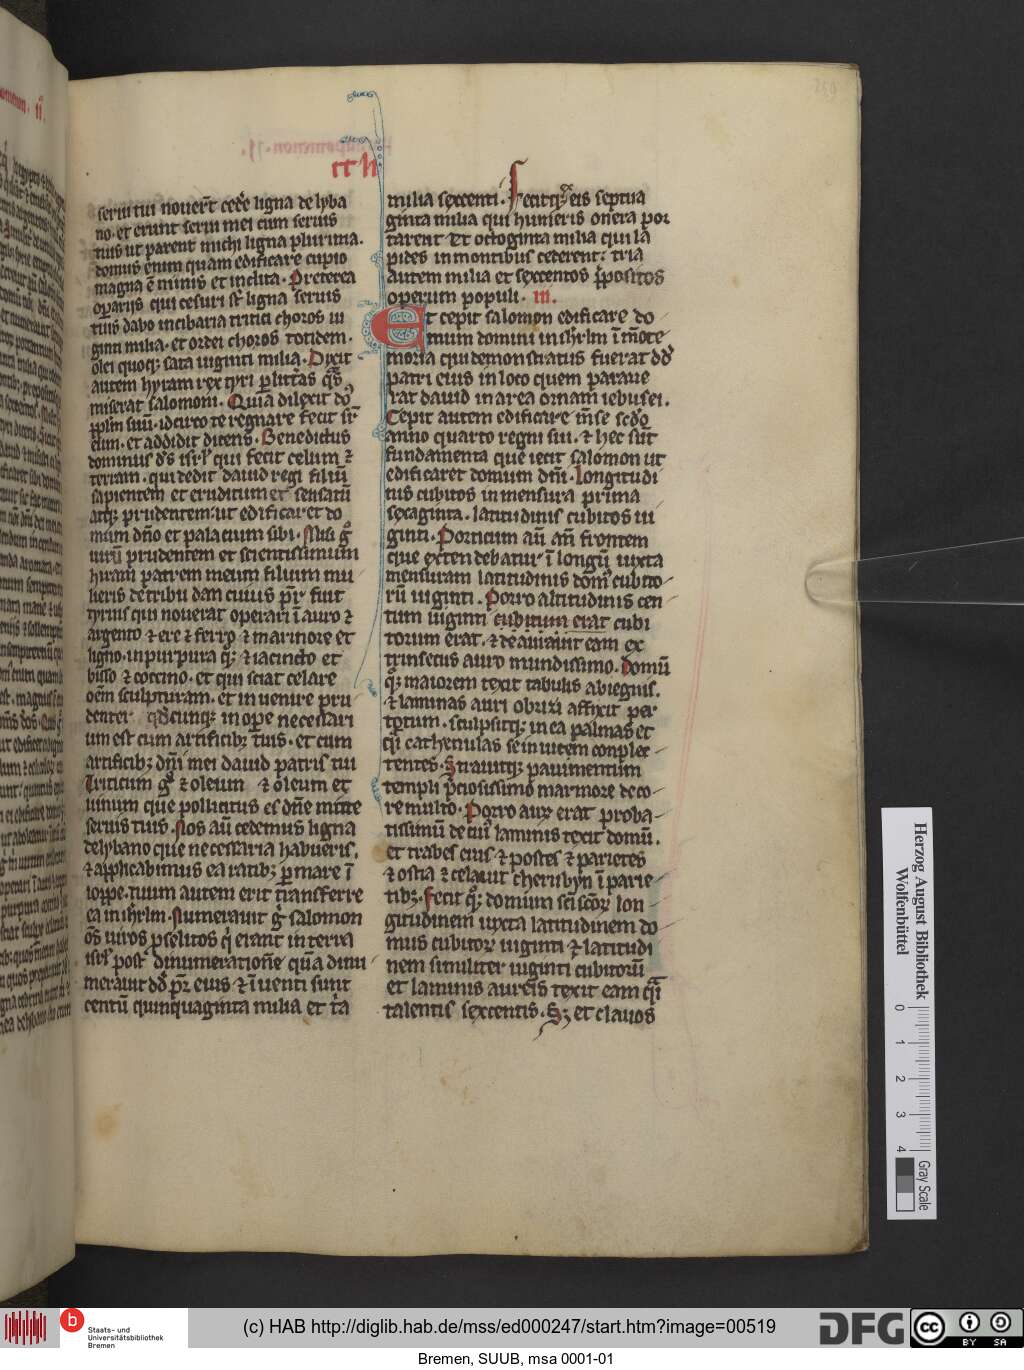 259
serui tui nouert̄ ced'e ligna de lyba
no· et erunt serui mei cum seruis
tuis ut parent michi ligna plurima·
domus enim quam edificare cupio
magna ē nimis et inclita· Preterea
oꝑarijs qui cesuri st̄ ligna seruis
tuis dabo in cibaria tritici choros ui
ginti milia· et ordei choros totidem·
olei quoqꝫ sata uiginti milia· Dixit
autem hyram rex tyri ꝑ litt̄as q̄s
miserat salomoni· Quia dilexit do
ppl̄m suū· idcirco te regnare fecit sr̄
eum· et addidit dicens· Benedictus
dominus d̄s isrl̄ qui fecit celum ⁊
terram· qui dedit dauid regi filiū
sapientem et eruditum et sensatū
atqꝫ prudentem· ut edificaret do
mum dn̄o et palacium sibi· Misi g̊
uirū prudentem et scientissimum
hiram patrem meum filium mu
lieris de tribu dan cuius pr̄ fuit
tyrius qui nouerat operari ī auro ⁊
argento ⁊ ere ⁊ ferro ⁊ marmore et
ligno· in purpura qꝫ ⁊ iacincto et
bisso ⁊ coccino· et qui sciat celare
oēm sculpturam· et inuenire pru
denter qd̄cunqꝫ in oꝑe necessari
um est cum artificibꝫ tuis· et cum
artificibꝫ dn̄i mei dauid patris tui
Triticum g̊ ⁊ oleum ⁊ oleum et
uinum que pollicitus es dn̄e mitte
seruis tuis· Nos aū cedemus ligna
de lybano que necessaria habueris·
⁊ applicabimus ea ratibꝫ ꝑ mare ī
ioppe· tuum autem erit transferre
ea in ihrl̄m· Numerauit g̊ salomon
oēs uiros ꝓselitos q̇ erant in terra
isrl̄ post dinumeratioñe quā dinu
merauit dd̄ pr̄ eius ⁊ īuenti sunt
centū quinquaginta milia et tria
milia sexcenti· Fecitqꝫ ex eis septua
ginta milia qui humeris onera por
tarent Et octoginta milia qui la
pides in montibus cederent· tria
autem milia et sexcentos p̄positos
operum populi· III·
Et cepit salomon edificare do
mum domini in ihrl̄m ī mōte
moria qui demonstratus fuerat dd̄
patri eius in loco quem paraue
rat dauid in area ornam iebusei·
Cepit autem edificare mēse sc̄do
anno quarto regni sui· ⁊ hec sūt
fundamenta que iecit salomon ut
edificaret domum dn̄i· Longitudi
nis cubitos in mensura prima
sexaginta· latitudinis cubitos ui
ginti· Porticum aū an̄ frontem
que extendebatur ī longū iuxta
mensuram latitudinis dom̄ cubito
rū uiginti· Porro altitudinis cen
tum uiginti cubitum erat cubi
torum erat· ⁊ deaurauit eam ex
trinsecus auro mundissimo· Domū
qꝫ maiorem texit tabulis abiegnis·
⁊ laminas auri obrizi affixit per
totum· sculpsitqꝫ in ea palmas et
q̇ cathenulas se inuicem complec
tentes· Strauitqꝫ pauimentum
templi p̄ciosissimo marmore deco
re multo· Porro aur̄ erat proba
tissimū de cui̾ laminis texit domū·
et trabes eius ⁊ postes ⁊ parietes
⁊ ostia ⁊ celauit cherubyn ī parie
tibꝫ· Fecit qꝫ domum sc̄i sc̄oꝝ lon
gitudinem iuxta latitudinem do
mus cubitoꝝ uiginti ⁊ latitudi
nem similiter uiginti cubitorū
et laminis aureis texit eam q̄i
talentis sexcentis· Sꝫ et clauos
Herzog August Bibliothek
Wolfenbüttel
0 1 2 3 4
Gray Scale
b Staats- und
Universitätsbibliothek
Bremen
(c) HAB http://diglib.hab.de/mss/ed000247/start.htm?image=00519
DFG
cc BY SA
Bremen, SUUB, msa 0001-01